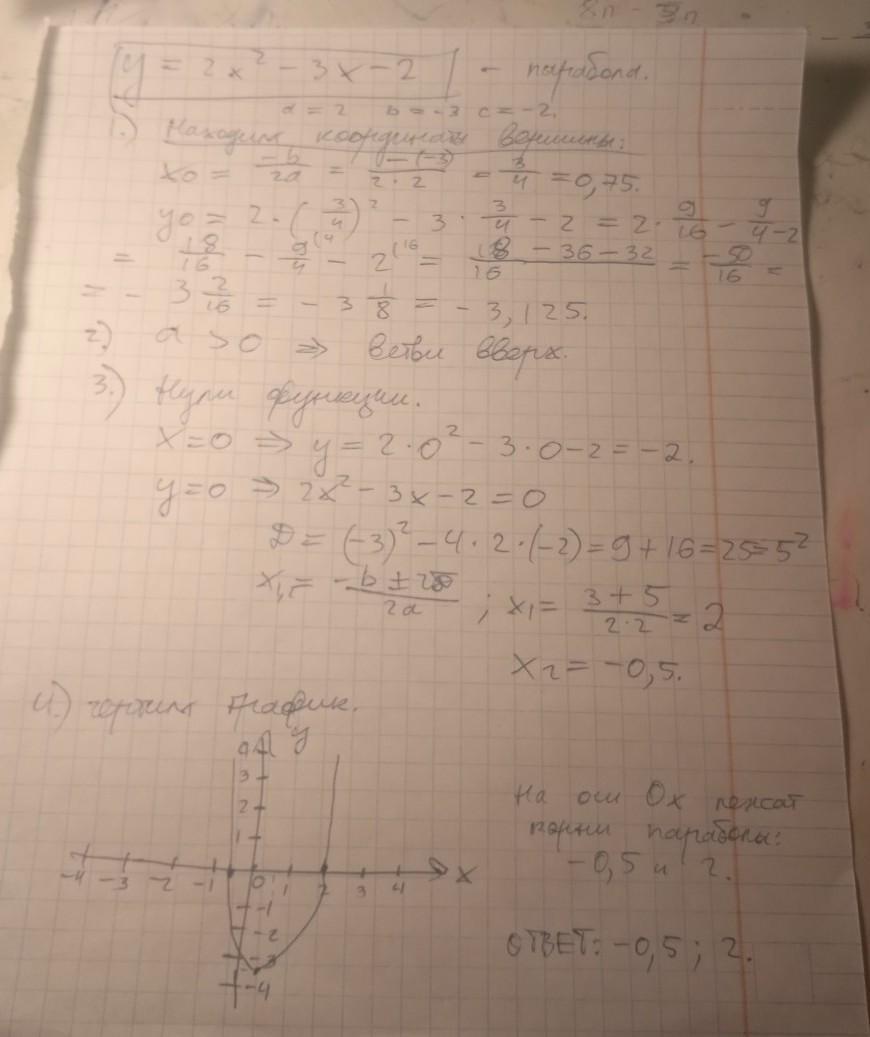 8n - 3n
y = 2x² - 3x - 2 - парабола.
a = 2 b = -3 c = -2.
1.) Находим координаты вершины:
x0 = -b/2a = -(-3)/2·2 = 3/4 = 0,75.
y0 = 2·(3/4)² - 3·3/4 - 2 = 2·9/16 - 9/4 - 2
= 18/16 - 9/4(4 - 2(16 = 18 - 36 - 32/16 = -50/16 =
= - 3 2/16 = - 3 1/8 = - 3,125.
2.) a > 0 ⇒ ветви вверх.
3.) Нули функции.
x = 0 ⇒ y = 2·0² - 3·0 - 2 = -2.
y = 0 ⇒ 2x² - 3x - 2 = 0
D = (-3)² - 4·2·(-2) = 9 + 16 = 25 = 5²
x1,2 = -b ± /2a ; x1 = 3 + 5/2·2 = 2
x2 = -0,5.
4.) чертим график.
y
4
3
2
1
-4 -3 -2 -1 0 1 2 3 4 x
-1
-2
-3
-4
На оси Ox лежат
корни параболы:
-0,5 и 2.
ОТВЕТ: -0,5 ; 2.